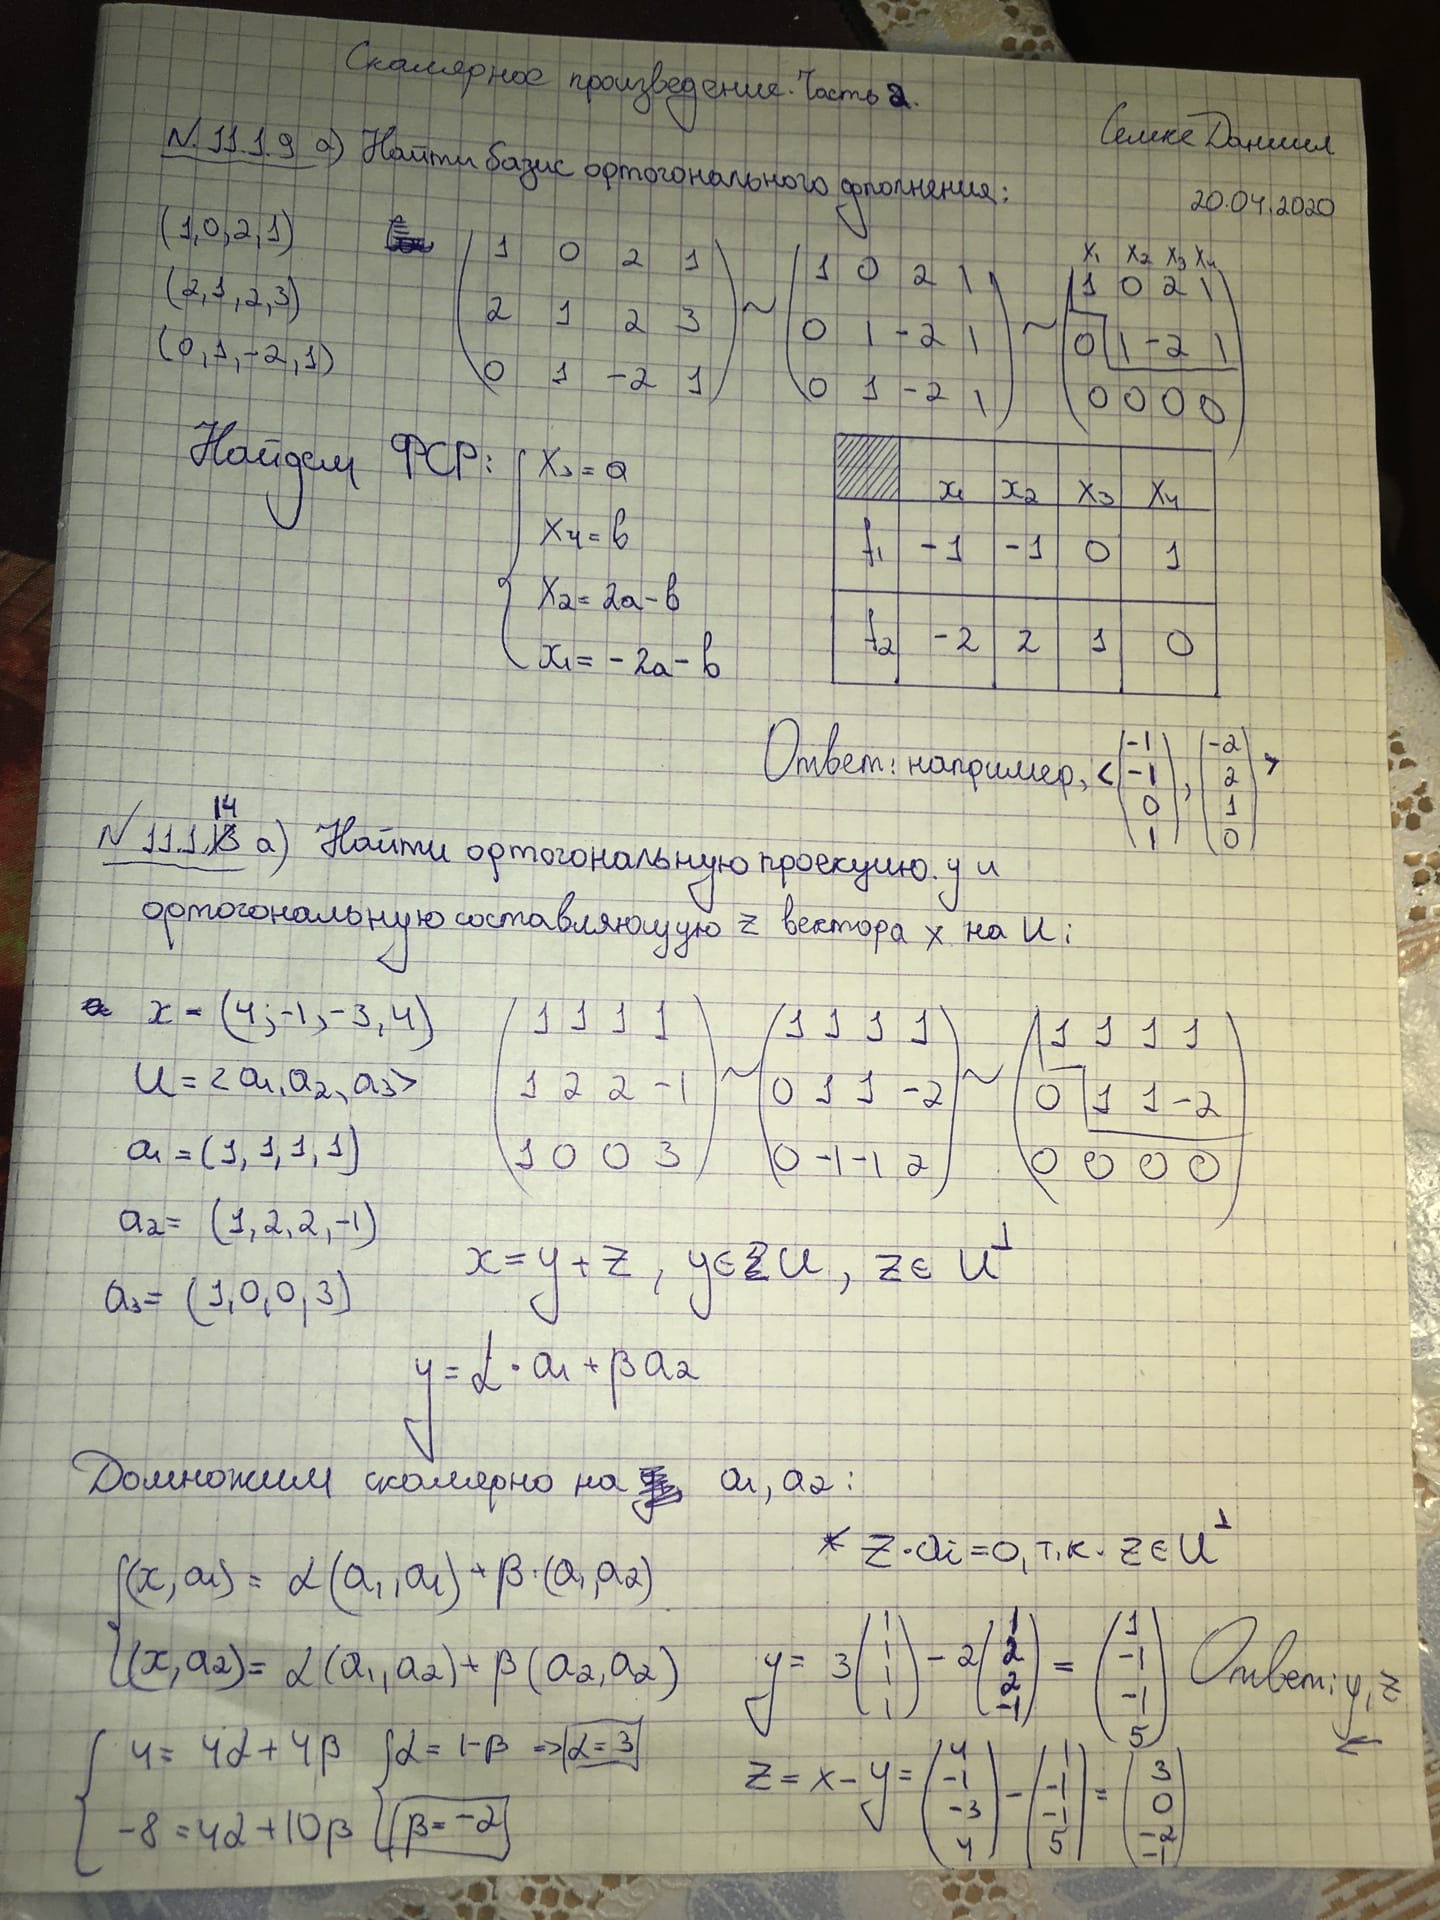 Скалярное произведение. Часть 2.
Семке Даниил
20.04.2020
N.11.1.9 a) Найти базис ортогонального дполнения:
(1,0,2,1)
(2,1,2,3)
(0,1,-2,1)
(1 0 2 1) ~ (1 0 2 1) ~ x1 x2 x3 x4 (1 0 2 1)
(2 1 2 3) (0 1 -2 1) (0 1 -2 1)
(0 1 -2 1) (0 1 -2 1) (0 0 0 0)
Найдем ФСР: { x3 = a
x4 = b
x2 = 2a - b
x1 = -2a - b
x1 x2 x3 x4
f1 -1 -1 0 1
f2 -2 2 1 0
Ответ: например, < (-1 -1 0 1), (-2 2 1 0) >
N 11.1.14 a) Найти ортогональную проекцию. y и
ортогональную составляющую z вектора x на U:
x = (4;-1,-3,4)
U = <a1, a2, a3>
a1 = (1,1,1,1)
a2 = (1,2,2,-1)
a3 = (1,0,0,3)
(1 1 1 1) ~ (1 1 1 1) ~ (1 1 1 1)
(1 2 2 -1) (0 1 1 -2) (0 1 1 -2)
(1 0 0 3) (0 -1 -1 2) (0 0 0 0)
x = y + z, y ∈ U, z ∈ U⊥
y = α · a1 + β a2
Домножим скалярно на a1, a2:
* z · ai = 0, т.к. z ∈ U⊥
{ (x, a1) = α (a1, a1) + β · (a1, a2)
(x, a2) = α (a1, a2) + β (a2, a2)
{ 4 = 4α + 4β { α = 1-β => α = 3
-8 = 4α + 10β β = -2
y = 3 (1 1 1 1) - 2 (1 2 2 -1) = (1 -1 -1 5)
z = x - y = (4 -1 -3 4) - (1 -1 -1 5) = (3 0 -2 -1)
Ответ: y, z
←